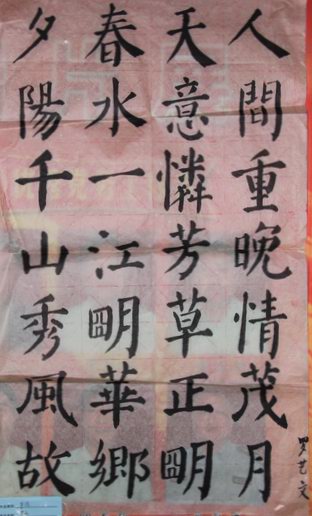 人間重晚情茂月
天意憐芳草正朙
春水一江朙華鄉
夕陽千山秀風故
罗艺文